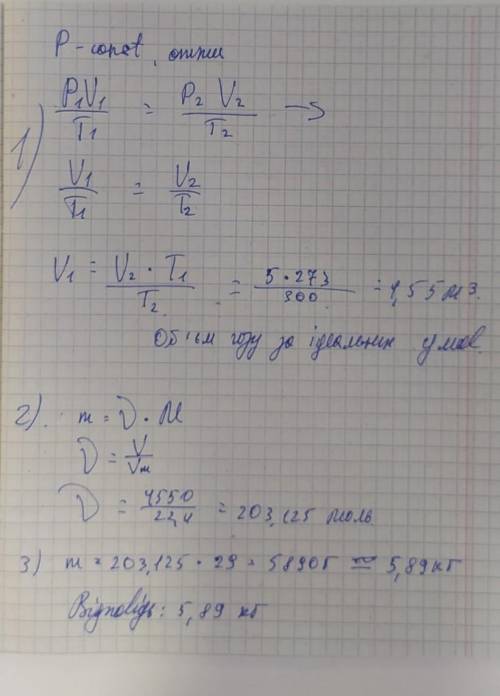 P - const, отже
1) P₁V₁/T₁ = P₂V₂/T₂ →
V₁/T₁ = V₂/T₂
V₁ = V₂ · T₁/T₂ = 5 · 273/300 = 4,55 м³.
Обʼєм газу за ідеальних умов.
2). m = ν · M
ν = V/Vm
ν = 4550/22,4 = 203,125 моль
3) m = 203,125 · 29 = 5890г ≈ 5,89 кг
Відповідь: 5,89 кг